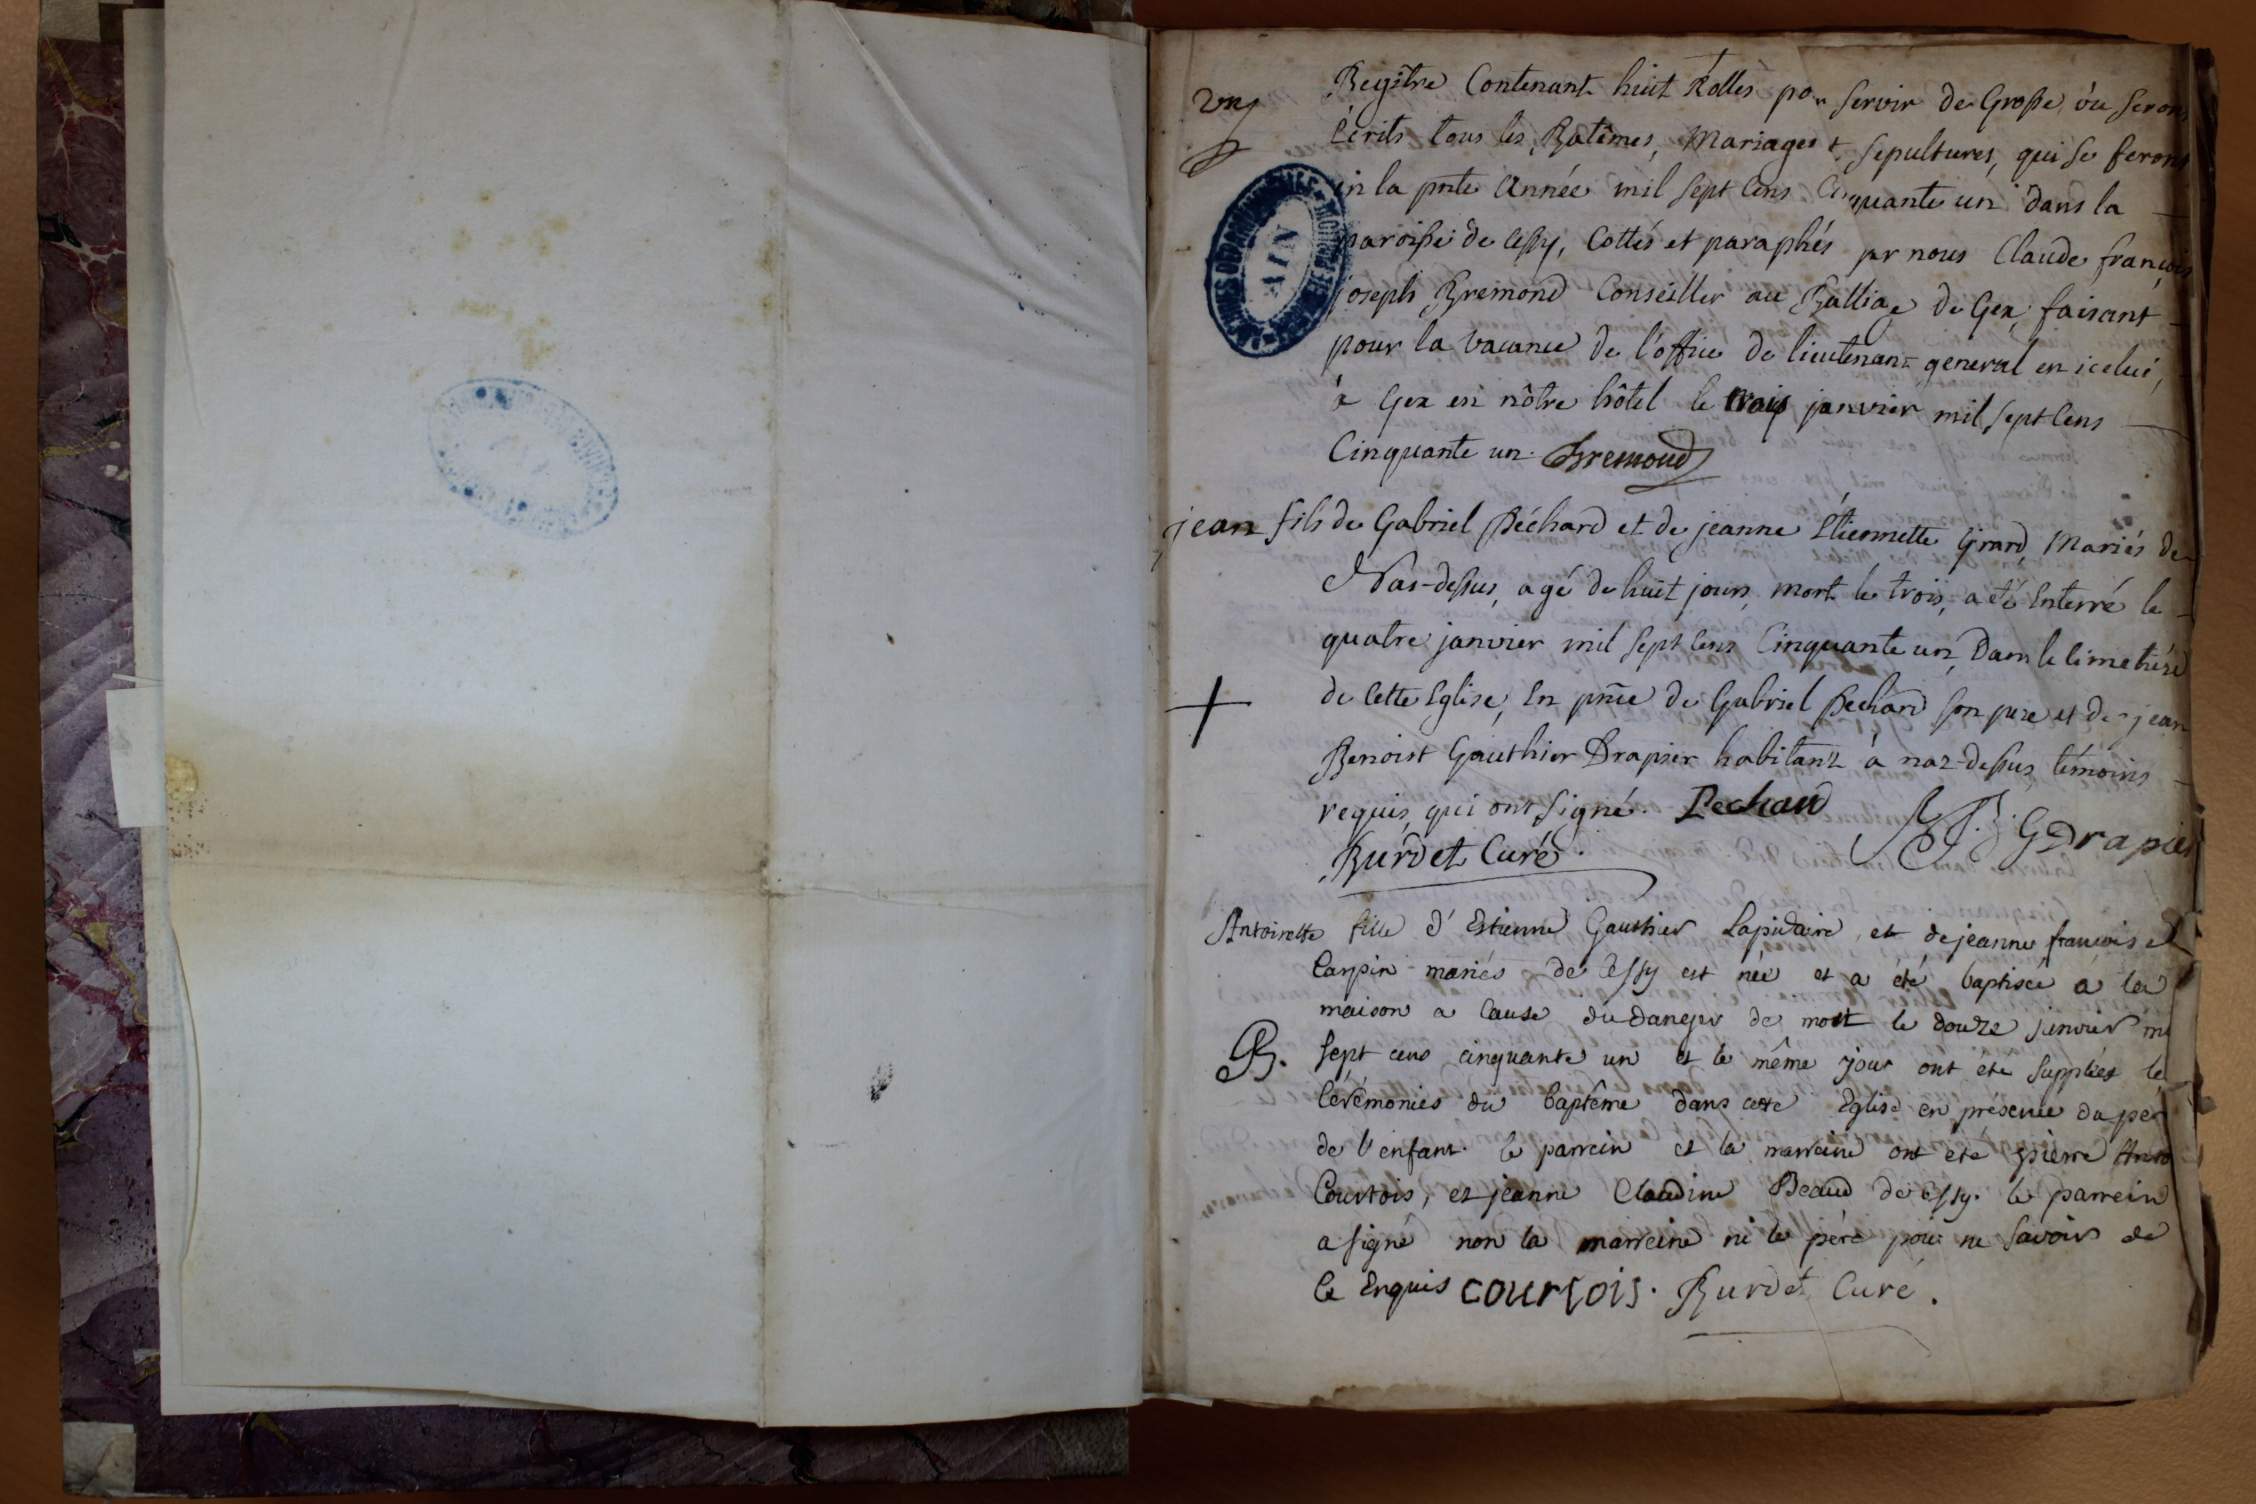 un
Registre Contenant huit Rolles por servir de Grosse, où seron
Ecrits tous les Batêmes, Mariages & sepultures, qui se feront
En la pnte Année mil sept cens Cinquante un dans la
paroisse de Cessy, Cottés et paraphés par nous Claude françois
joseph Bremond Conseiller au Balliage de Gex, faisant
pour la vacance de l'office de lieutenant general en icelui,
à Gex en nôtre hôtel le trois janvier mil sept Cens
Cinquante un. Bremond
AIN
jean fils de Gabriel Péchard et de jeanne Etiennette Girard Mariés de
Nas-dessus, agé de huit jours, mort le trois, a été Enterré le
quatre janvier mil sept cens Cinquante un, Dans le Cimetière
de Cette Eglise, En pnce de Gabriel Pechard son pere et de jean
Benoist Gauthier Drapier habitant à naz-dessus, témoins
requis, qui ont signé. Pechard J. B. G Drapier
Burdet Curé.
Antoinette fille d'Estienne Gauthier Lapidaire, et de jeanne francoise
Carpin mariés de Cessy est née et a été baptisée a la
maison a Cause du danger de mort le douze janvier mi
B. sept cens cinquante un et le même jour ont été supplées les
Cérémonies du baptême dans cette Eglise en présence du per
de l'enfant. le parrein et la marreine ont été pierre Anto
Courtois, et jeanne Claudine Beaud de Cessy. le parrein
a signé non la marreine ni le père pour ne savoir de
Ce Enquis COURTOIS. Burdet Curé.